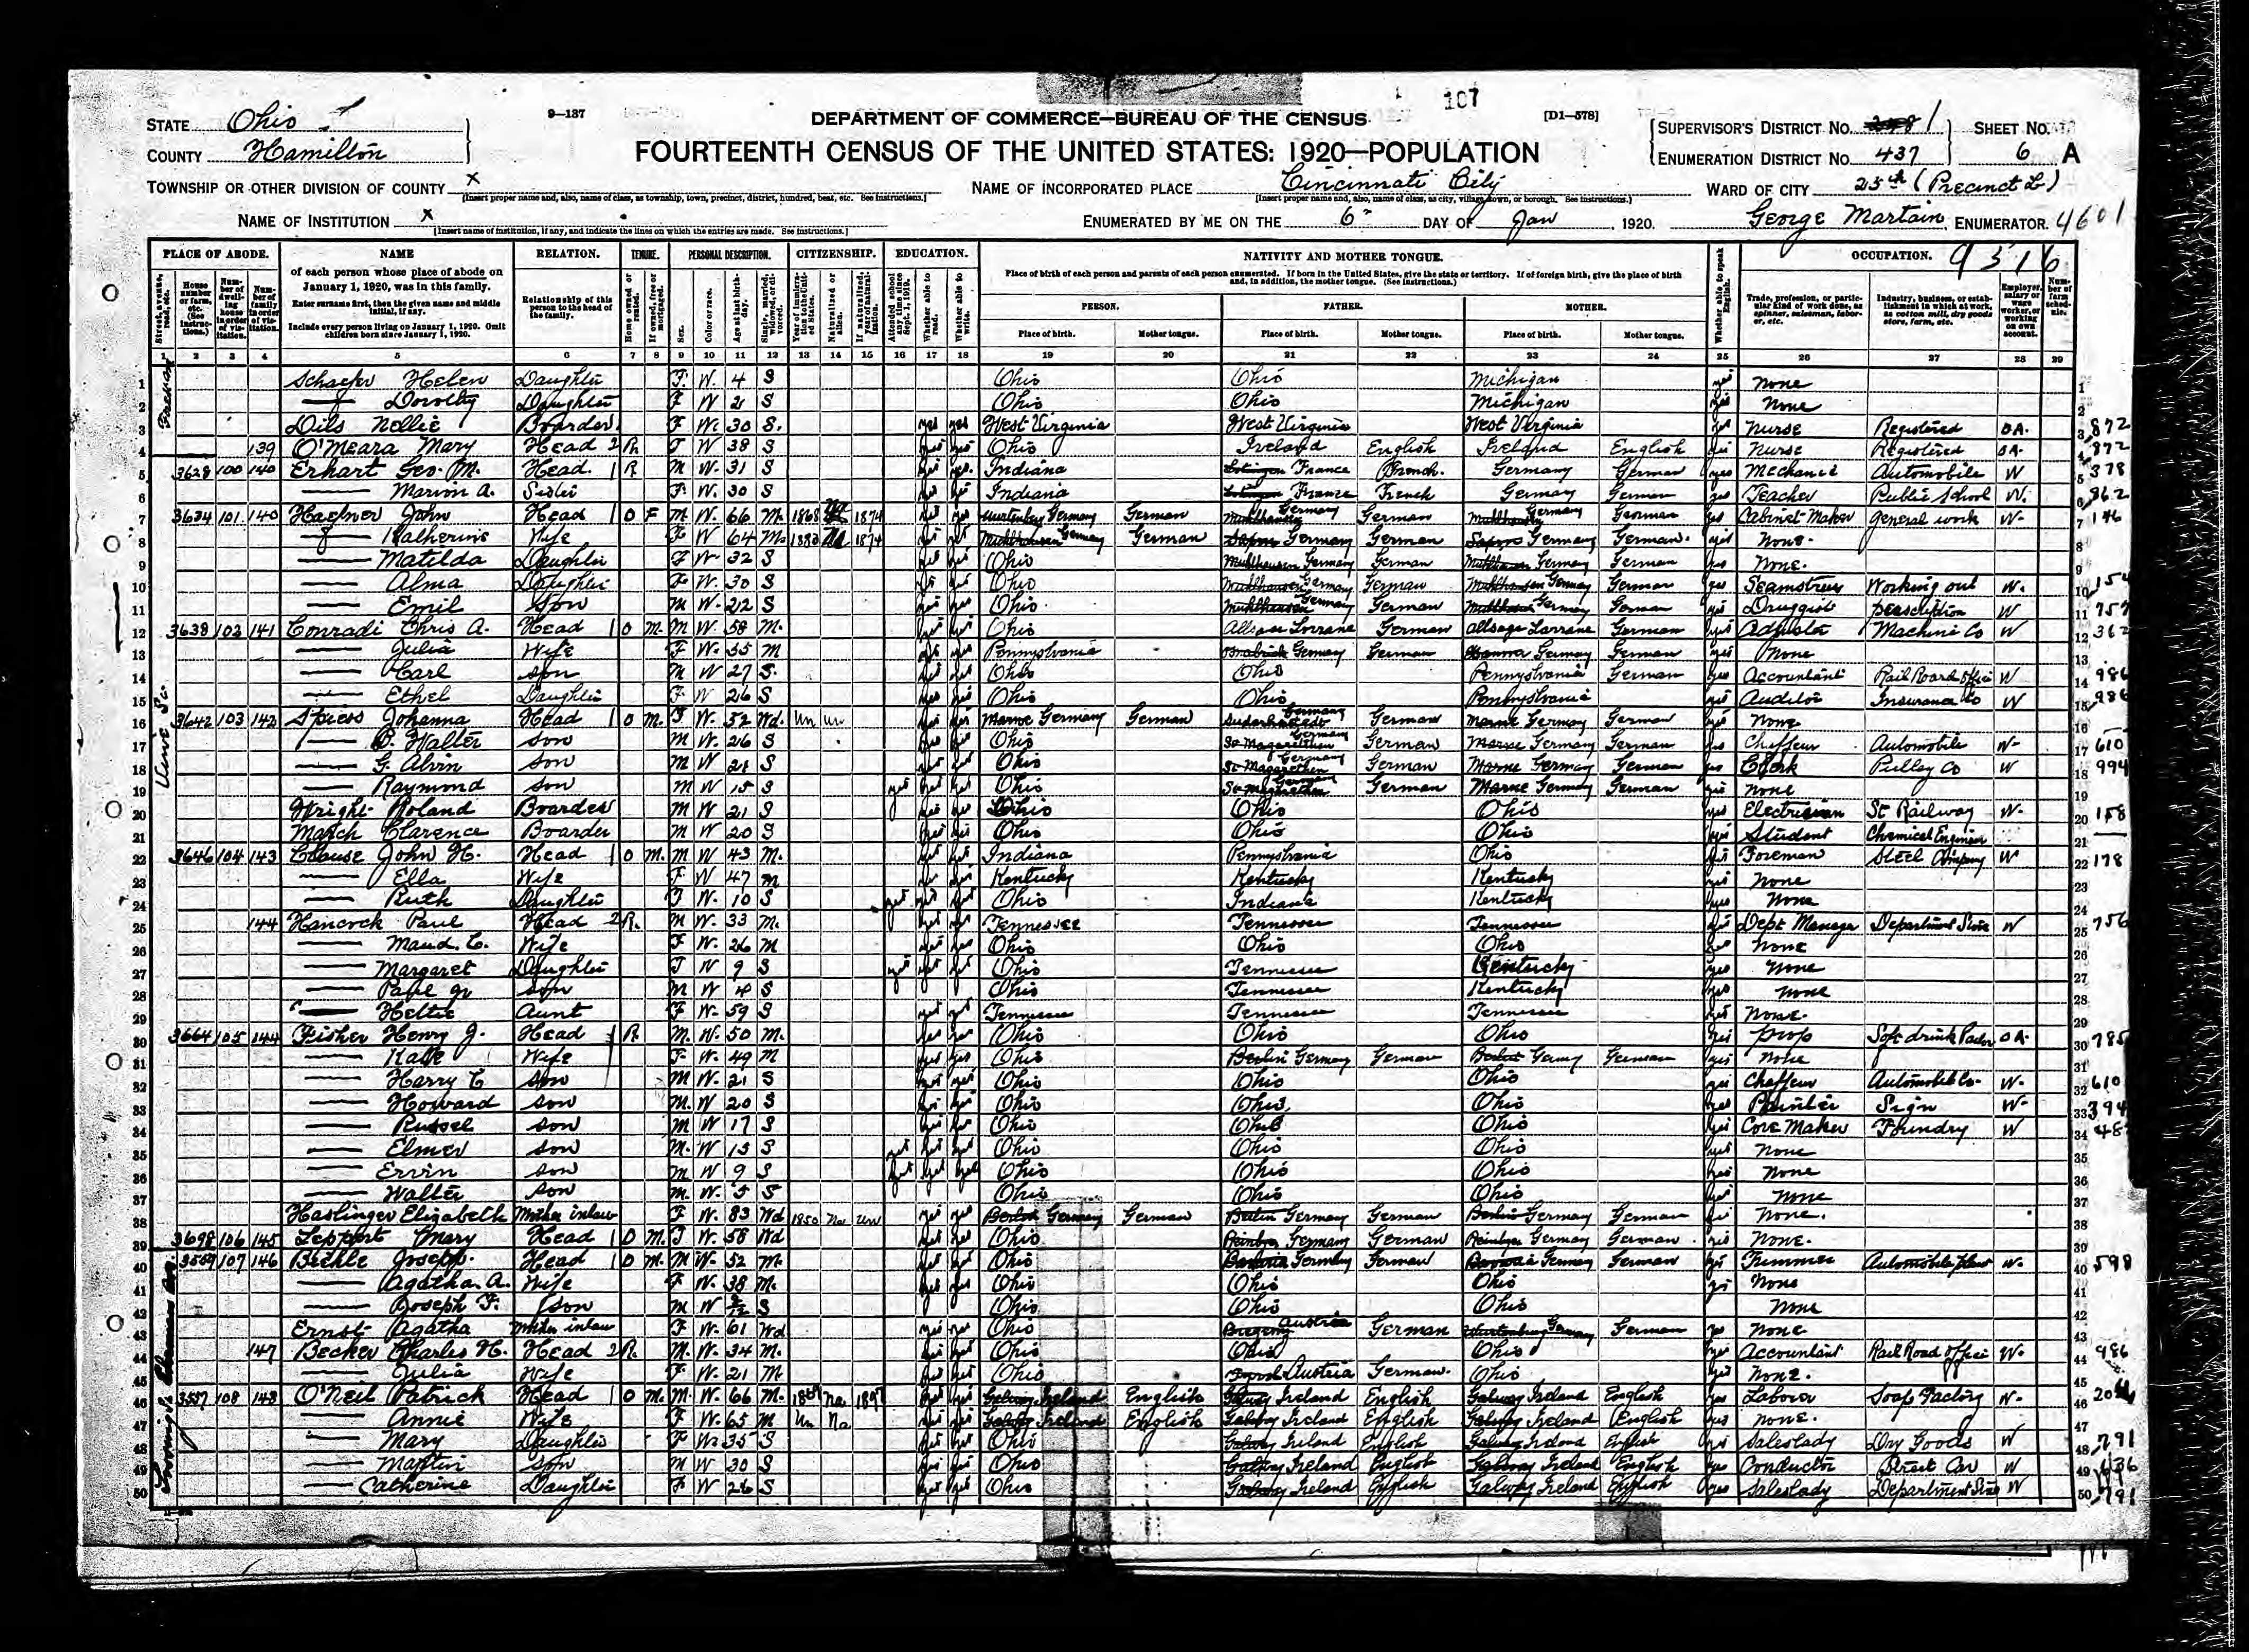 107
STATE Ohio
9—137
DEPARTMENT OF COMMERCE—BUREAU OF THE CENSUS
[D1—578]
SUPERVISOR'S DISTRICT No. 1 SHEET No.
COUNTY Hamilton
FOURTEENTH CENSUS OF THE UNITED STATES: 1920—POPULATION
ENUMERATION DISTRICT No. 437 6 A
TOWNSHIP OR OTHER DIVISION OF COUNTY X
NAME OF INCORPORATED PLACE Cincinnati City
WARD OF CITY 25th (Precinct L)
[Insert proper name and, also, name of class, as township, town, precinct, district, hundred, beat, etc. See instructions.]
[Insert proper name and, also, name of class, as city, village, town, or borough. See instructions.]
NAME OF INSTITUTION X
ENUMERATED BY ME ON THE 6 DAY OF Jan, 1920. George Martain, ENUMERATOR. 4601
[Insert name of institution, if any, and indicate the lines on which the entries are made. See instructions.]
PLACE OF ABODE. NAME RELATION. TENURE. PERSONAL DESCRIPTION. CITIZENSHIP. EDUCATION. NATIVITY AND MOTHER TONGUE. OCCUPATION. 9516
of each person whose place of abode on January 1, 1920, was in this family.
Enter surname first, then the given name and middle initial, if any.
Include every person living on January 1, 1920. Omit children born since January 1, 1920.
Relationship of this person to the head of the family.
Place of birth of each person and parents of each person enumerated. If born in the United States, give the state or territory. If of foreign birth, give the place of birth and, in addition, the mother tongue. (See instructions.)
PERSON. FATHER. MOTHER.
Place of birth. Mother tongue. Place of birth. Mother tongue. Place of birth. Mother tongue.
1 2 3 4 5 6 7 8 9 10 11 12 13 14 15 16 17 18 19 20 21 22 23 24 25 26 27 28 29
1 Schaefer Helen Daughter F W 4 S Ohio Ohio Michigan yes None
2 Dorothy Daughter F W 2 S Ohio Ohio Michigan None
3 Dils Nellie Boarder F W 30 S yes yes West Virginia West Virginia West Virginia yes Nurse Registered OA 872
4 139 O'Meara Mary Head 2 R F W 38 S yes yes Ohio Ireland English Ireland English yes Nurse Registered OA 872
5 3628 100 140 Erhart Geo. M. Head 1 R M W 31 S yes yes Indiana France French Germany German yes Mechanic Automobile W 378
6 Marion A. Sister F W 30 S yes yes Indiana France French Germany German yes Teacher Public School W 862
7 3634 101 140 Haefner John Head 1 O F M W 66 M 1868 1874 yes yes Germany German Germany German Germany German yes Cabinet Maker general work W 146
8 Katherine Wife F W 64 M 1880 1874 yes yes Germany German Germany German Germany German yes None
9 Matilda Daughter F W 32 S yes yes Ohio Germany German Germany German yes None
10 Alma Daughter F W 30 S yes yes Ohio Germany German Germany German yes Seamstress Working out W 154
11 Emil Son M W 22 S yes yes Ohio Germany German Germany German yes Druggist W
12 3638 102 141 Conradi Chris A. Head 1 O M M W 58 M yes yes Ohio German German yes Adjuster Machine Co W 362
13 Julia Wife F W 55 M yes yes Pennsylvania Germany German Germany German yes None
14 Carl Son M W 27 S yes yes Ohio Ohio Pennsylvania German yes Accountant Rail Road office W 986
15 Ethel Daughter F W 26 S yes yes Ohio Ohio Pennsylvania yes Auditor Insurance Co W 986
16 3642 103 142 Spiess Johanna Head 1 O M F W 52 Wd Un Un yes yes Germany German Germany German Germany German yes None
17 B. Walter Son M W 26 S yes yes Ohio Germany German Germany German yes Cheffeur Automobile W 610
18 G. Alvin Son M W 21 S yes yes Ohio Germany German Germany German yes Clerk Pulley Co W 994
19 Raymond Son M W 15 S yes yes yes Ohio German Germany German yes None
20 Wright Roland Boarder M W 21 S yes yes Ohio Ohio Ohio yes Electrician St Railway W 158
21 March Clarence Boarder M W 20 S yes yes Ohio Ohio Ohio yes Student Chemical Engineer
22 3646 104 143 Clause John H. Head 1 O M M W 43 M yes yes Indiana Pennsylvania Ohio yes Foreman Steel Company W 178
23 Ella Wife F W 47 M yes yes Kentucky Kentucky Kentucky yes None
24 Ruth Daughter F W 10 S yes yes yes Ohio Indiana Kentucky yes None
25 144 Hancock Paul Head 2 R M W 33 M yes yes Tennessee Tennessee Tennessee yes Dept Manager Department Store W 756
26 Maud. C. Wife F W 26 M yes yes Ohio Ohio Ohio yes None
27 Margaret Daughter F W 9 S yes yes yes Ohio Tennessee Kentucky yes None
28 Paul Jr Son M W 4 S Ohio Tennessee Kentucky yes None
29 Hettie Aunt F W 59 S yes yes Tennessee Tennessee Tennessee yes None
30 3664 105 144 Fisher Henry J. Head 1 R M W 50 M yes yes Ohio Ohio Ohio yes Prop Soft drink Parlor OA 785
31 Kate Wife F W 49 M yes yes Ohio Germany German Germany German yes None
32 Harry C Son M W 21 S yes yes Ohio Ohio Ohio yes Cheffeur Automobile Co. W 610
33 Howard Son M W 20 S yes yes Ohio Ohio Ohio yes Painter Sign W 394
34 Russel Son M W 17 S yes yes Ohio Ohio Ohio yes Core Maker Foundry W
35 Elmer Son M W 13 S yes yes yes Ohio Ohio Ohio yes None
36 Ervin Son M W 9 S yes yes yes Ohio Ohio Ohio yes None
37 Walter Son M W 5 S Ohio Ohio Ohio yes None
38 Haslinger Elizabeth Mother inlaw F W 83 Wd 1850 Na Un yes yes Germany German Germany German Germany German yes None
39 3698 106 145 Leppert Mary Head 1 O M F W 58 Wd yes yes Ohio Germany German Germany German yes None
40 3559 107 146 Biehle Joseph Head 1 O M M W 52 M yes yes Ohio Germany German Germany German yes Trimmer Automobile Plant W 598
41 Agatha A. Wife F W 38 M yes yes Ohio Ohio Ohio yes None
42 Joseph F. Son M W S Ohio Ohio Ohio None
43 Ernst Agatha Mother inlaw F W 61 Wd yes yes Ohio Austria German Germany German yes None
44 147 Becker Charles H. Head 2 R M W 34 M yes yes Ohio Ohio Ohio yes Accountant Rail Road office W 986
45 Julia Wife F W 21 M yes yes Ohio Austria German Ohio yes None
46 3557 108 148 O'Neil Patrick Head 1 O M M W 66 M Na yes yes Ireland English Ireland English Ireland English yes Laborer Soap Factory W
47 Annie Wife F W 65 M Un Na yes yes Ireland English Ireland English Ireland English yes None
48 Mary Daughter F W 35 S yes yes Ohio Ireland English Ireland English yes Saleslady Dry Goods W 791
49 Martin Son M W 30 S yes yes Ohio Ireland English Ireland English yes Conductor Street Car W 636
50 Catherine Daughter F W 26 S yes yes Ohio Ireland English Ireland English yes Saleslady Department Store W 791